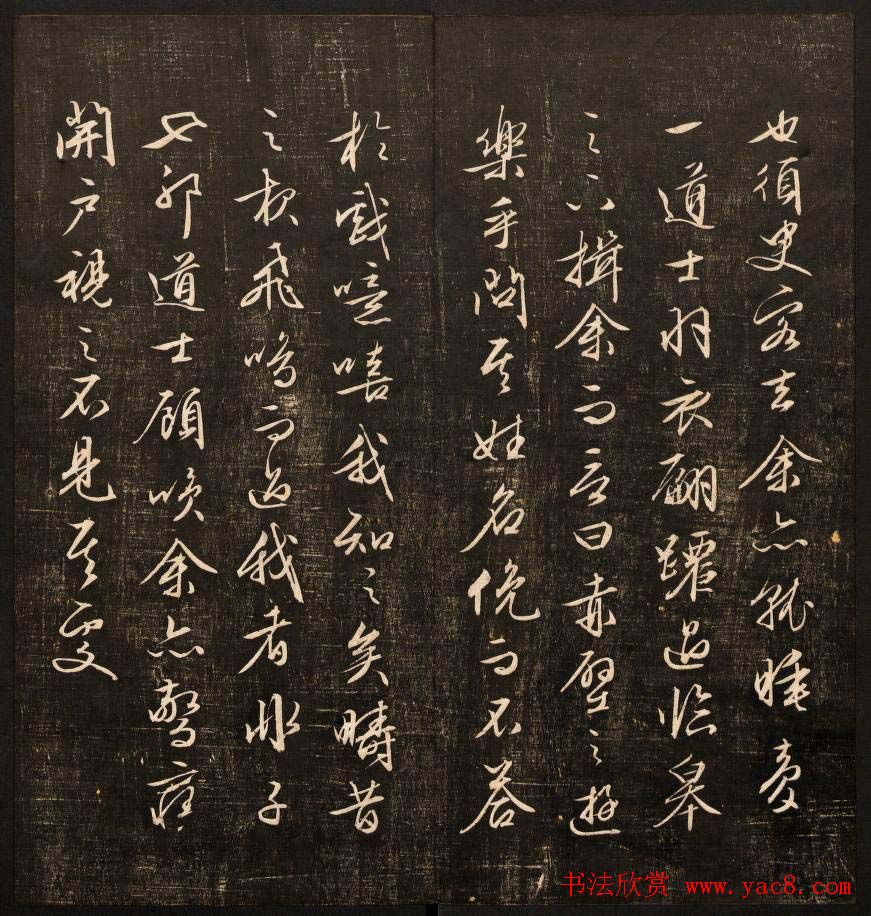 也須臾客去余亦就睡夢
一道士羽衣翩躚過臨皋
之下揖余而言曰赤壁之遊
樂乎問其姓名俛而不答
於戲噫嘻我知之矣疇昔
之夜飛鳴而過我者非子
也耶道士顧唉余亦驚寤
開户視之不見其處
书法欣赏 www.yac8.com